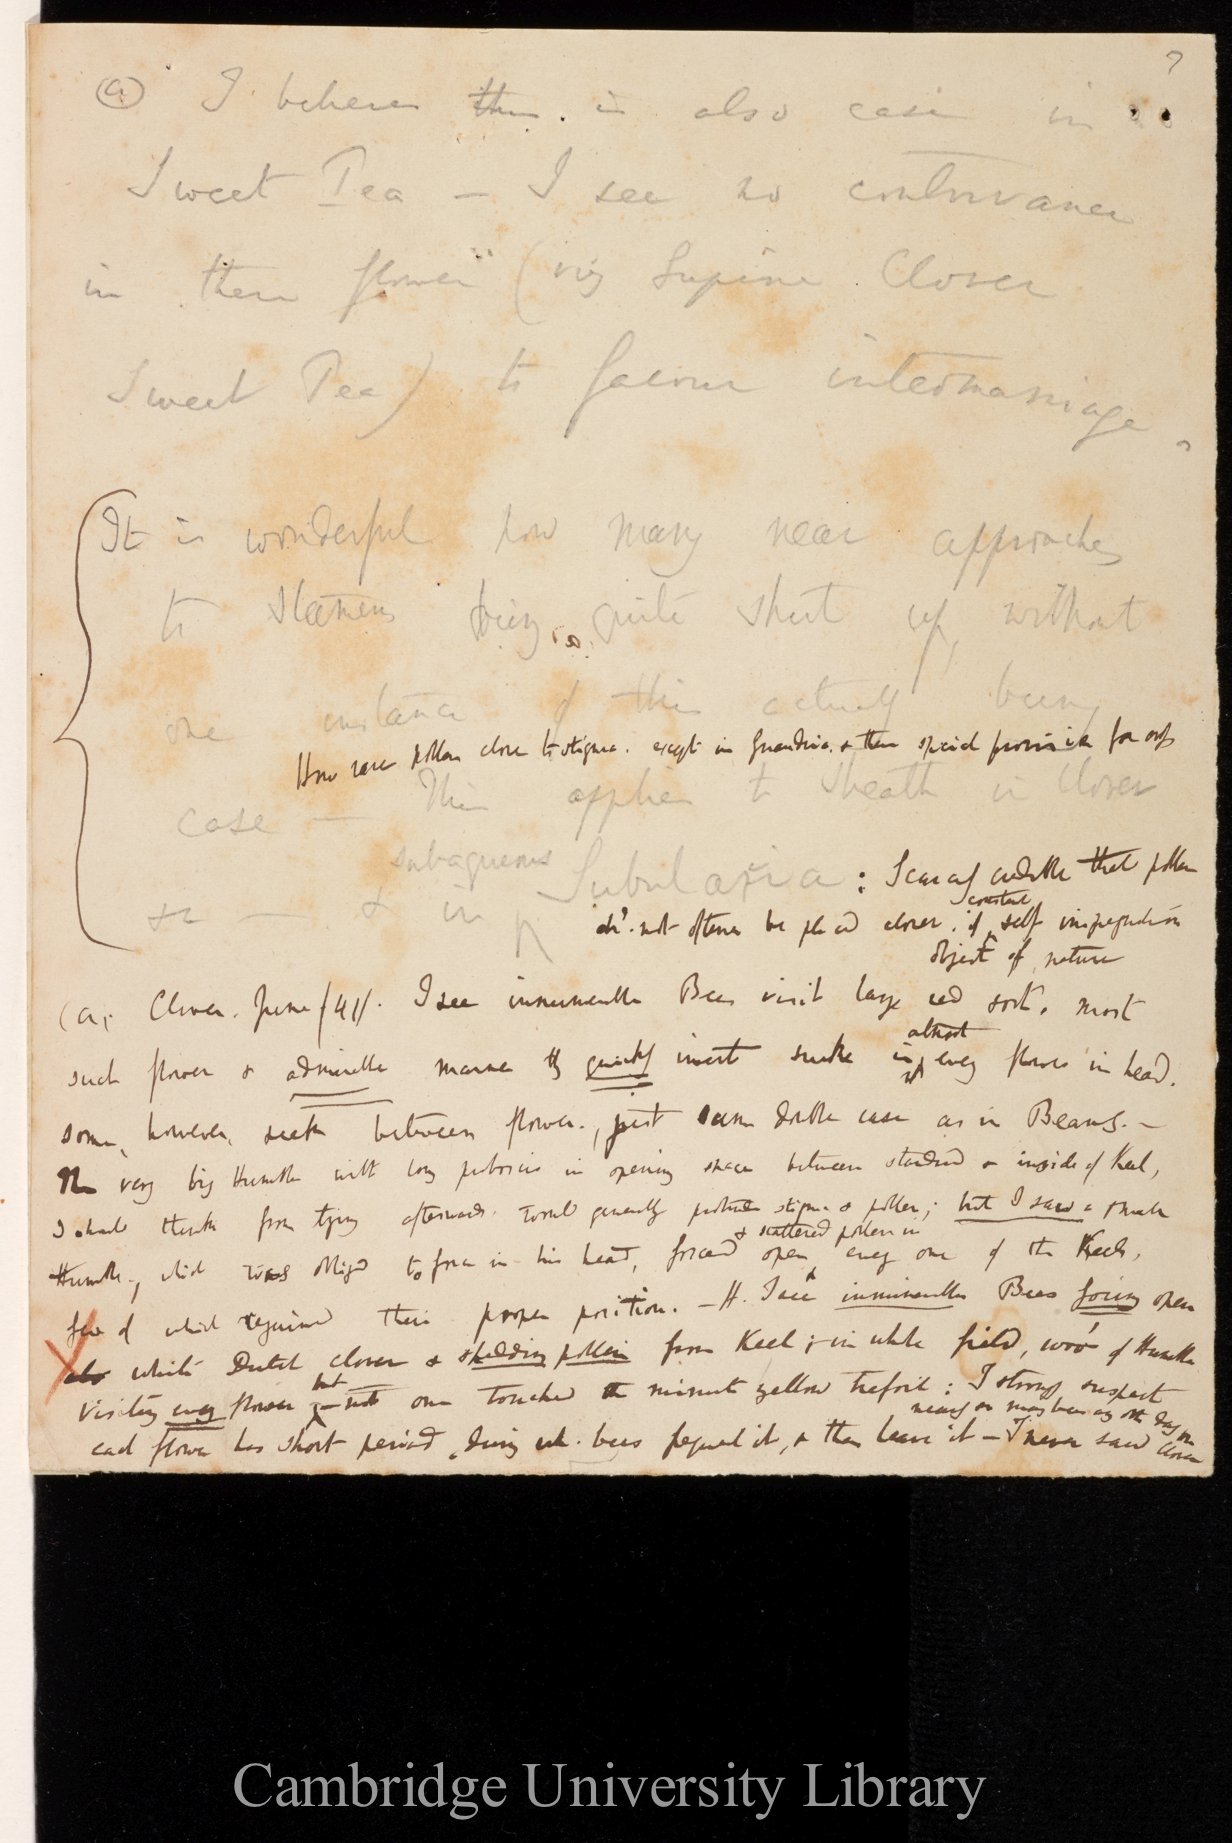 (a) I believe there is also case in
Sweet Pea — I see no contrivance
in these flowers (viz Lupine Clover
Sweet Pea) to favour intermarriage.
It is wonderful how many near approaches
to stamens being quite shut up, without
one instance of this actually being
How rare pollen close to stigma. except in & then special provision for
case — This applies to sheath in Clover
&c — & in subaqueous Subularia: Scarcely credible that pollen
shd. not oftener be placed closer. if constant self impregnation
object of nature
(a) Clover. June /41/. I see innumerable Bees visit large red sort. most
such flower & admirable manner they quickly insert sucker in almost every flower in head.
some, however, suck between flower., just same double case as in Beans. —
The very big Humble with long proboscis in opening space between standard & inside of Keel,
I shd think from trying afterwards. would generally protrude stigma & pollen; but I saw a small
Humble, which was obliged to force in his head, forced open & scattered pollen in every one of the Keels,
few of which regained their proper position. — I see innumerable Bees forcing open
also white Dutch clover & shedding pollen from Keel; in whole field, 100d of Humble
visiting every flower, but not one touched the minute yellow trefoil: I strongly suspect
each flower has short period, during wh. bees frequent it, & then leave it — I never saw nearly so many bees any other day on clover